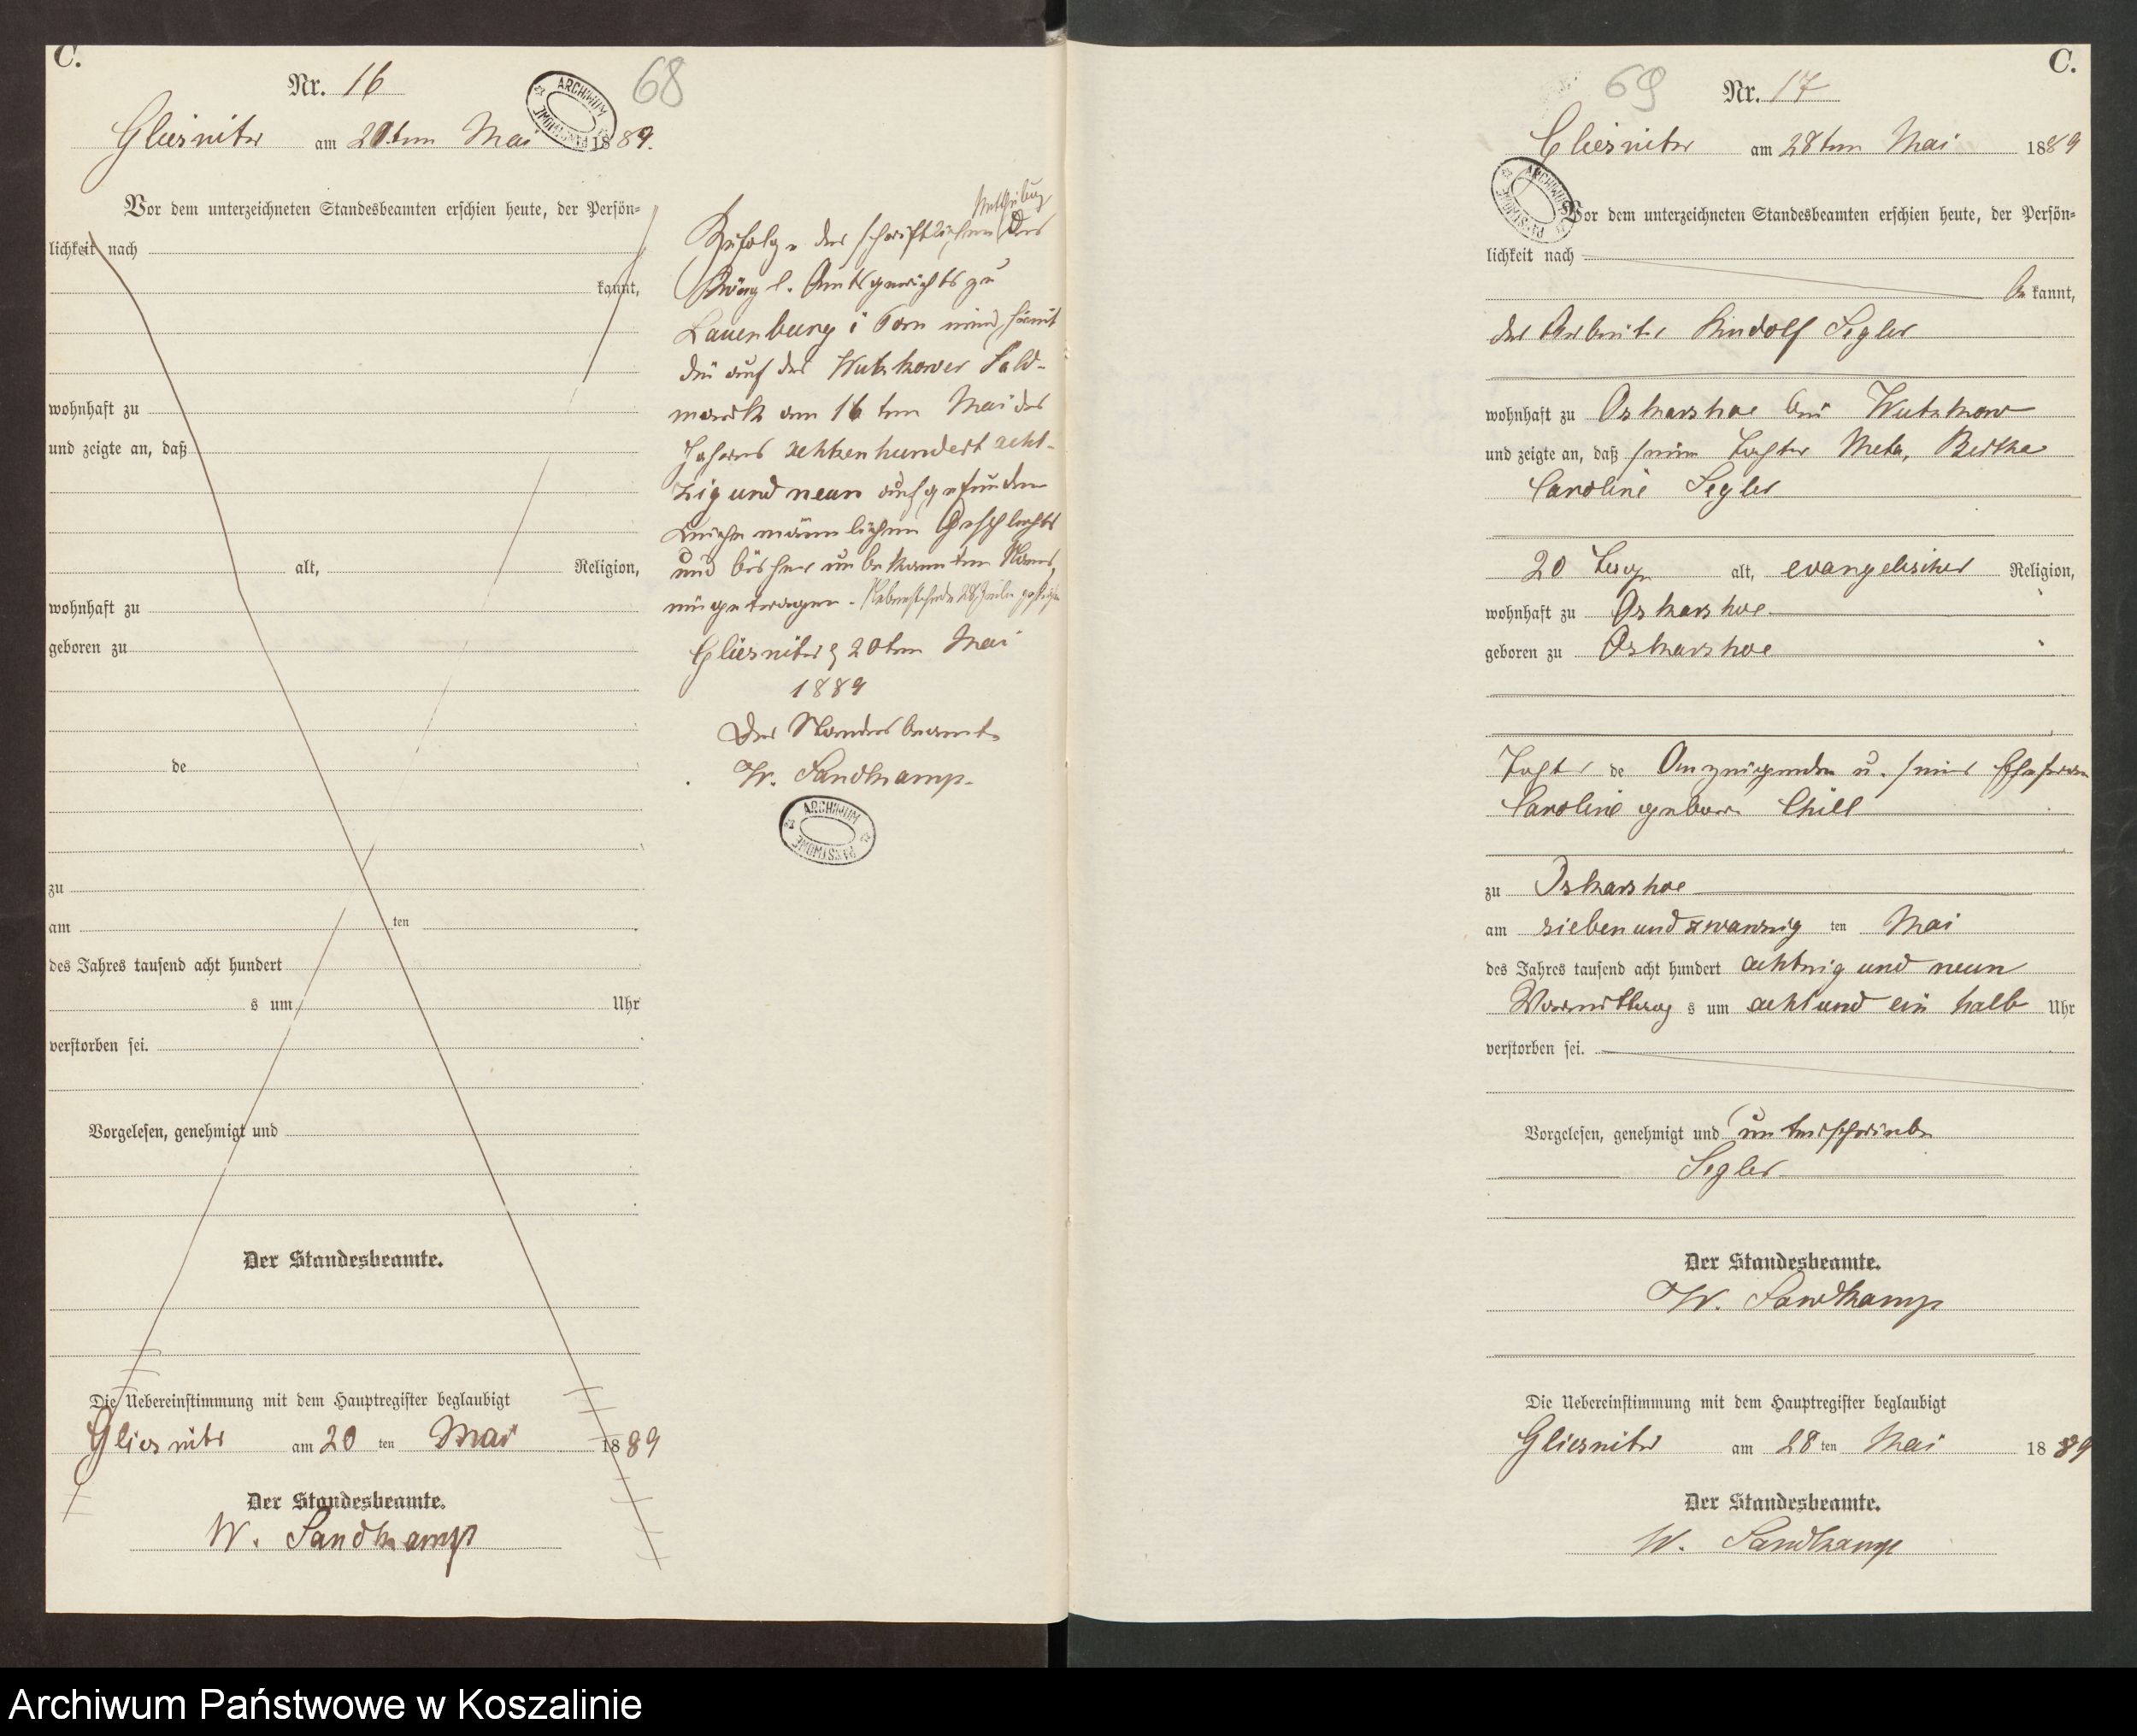 C.
Nr. 16
68
ARCHIWUM PAŃSTWOWE
Gliesnitz am 20ten Mai 1889.
Vor dem unterzeichneten Standesbeamten erschien heute, der Persön-
lichkeit nach
kannt,
wohnhaft zu
und zeigte an, daß
alt, Religion,
wohnhaft zu
geboren zu
de
zu
am ten
des Jahres tausend acht hundert
s um Uhr
verstorben sei.
Vorgelesen, genehmigt und
Der Standesbeamte.
Die Uebereinstimmung mit dem Hauptregister beglaubigt
Gliesnitz am 20 ten Mai 1889
Der Standesbeamte.
W. Sandkamp
Mittheilung
Zufolge der schriftlichen des
Königl. Amtsgerichts zu
Lauenburg i Pom wird hiermit
die auf der Wutzkower Feld-
mark am 16 ten Mai des
Jahres achtzehnhundert acht-
zig und neun aufgefundene
Leiche männlichen Geschlechts
und bisher unbekannten Namens,
eingetragen. Nebenstehende 28 Zeilen gestrichen
Gliesnitz 20ten Mai
1889
Der Standesbeamte
W. Sandkamp
ARCHIWUM PAŃSTWOWE
C.
69
Nr. 17
Gliesnitz am 28ten Mai 1889
ARCHIWUM PAŃSTWOWE
Vor dem unterzeichneten Standesbeamten erschien heute, der Persön-
lichkeit nach
be kannt,
der Arbeiter Rudolf Segler
wohnhaft zu Oskarshoe bei Wutzkow
und zeigte an, daß seine Tochter Meta, Bertha
Caroline Segler
20 Tage alt, evangelischer Religion,
wohnhaft zu Oskarshoe
geboren zu Oskarshoe
Tochter de Anzeigenden u. seiner Ehefrau
Caroline geboren Chill
zu Oskarshoe
am sieben und zwanzig ten Mai
des Jahres tausend acht hundert achtzig und neun
Vormittag s um acht und ein halb Uhr
verstorben sei.
Vorgelesen, genehmigt und unterschrieben
Segler
Der Standesbeamte.
W. Sandkamp
Die Uebereinstimmung mit dem Hauptregister beglaubigt
Gliesnitz am 28 ten Mai 1889
Der Standesbeamte.
W. Sandkamp
Archiwum Państwowe w Koszalinie